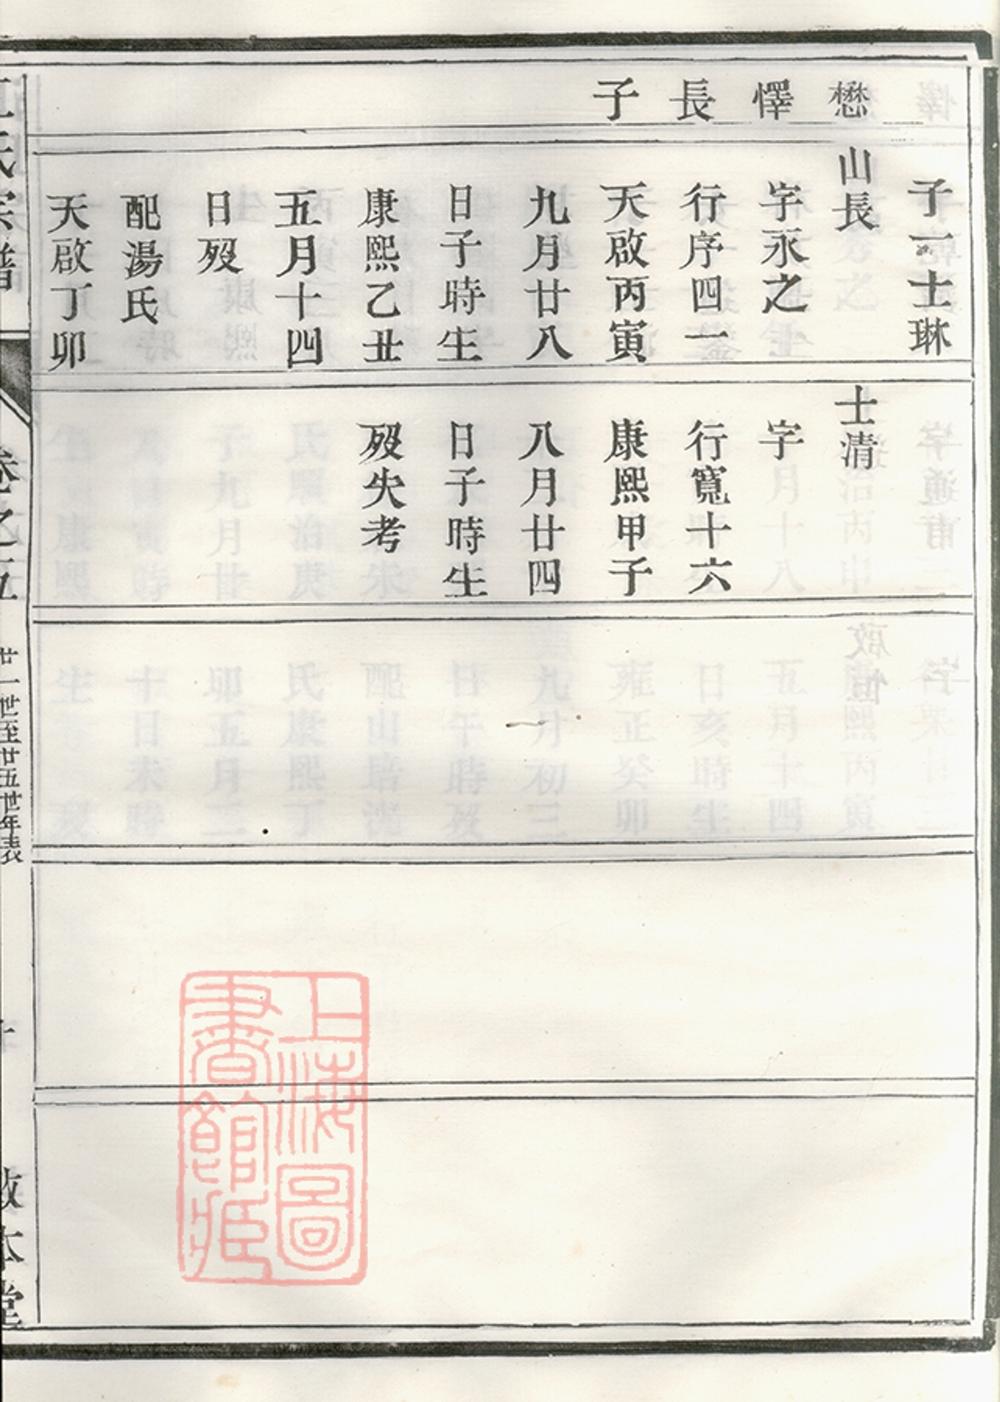 懋
懌
長
子
子一士琳
山長
字永之
行序四一
天啟丙寅
九月廿八
日子時生
康熙乙丑
五月十四
日歿
配湯氏
天啟丁卯
士清
字
行寬十六
康熙甲子
八月廿四
日子時生
歿失考
氏宗譜
卷之五
廿一世至廿五世年表
本堂
上海圖
書館藏